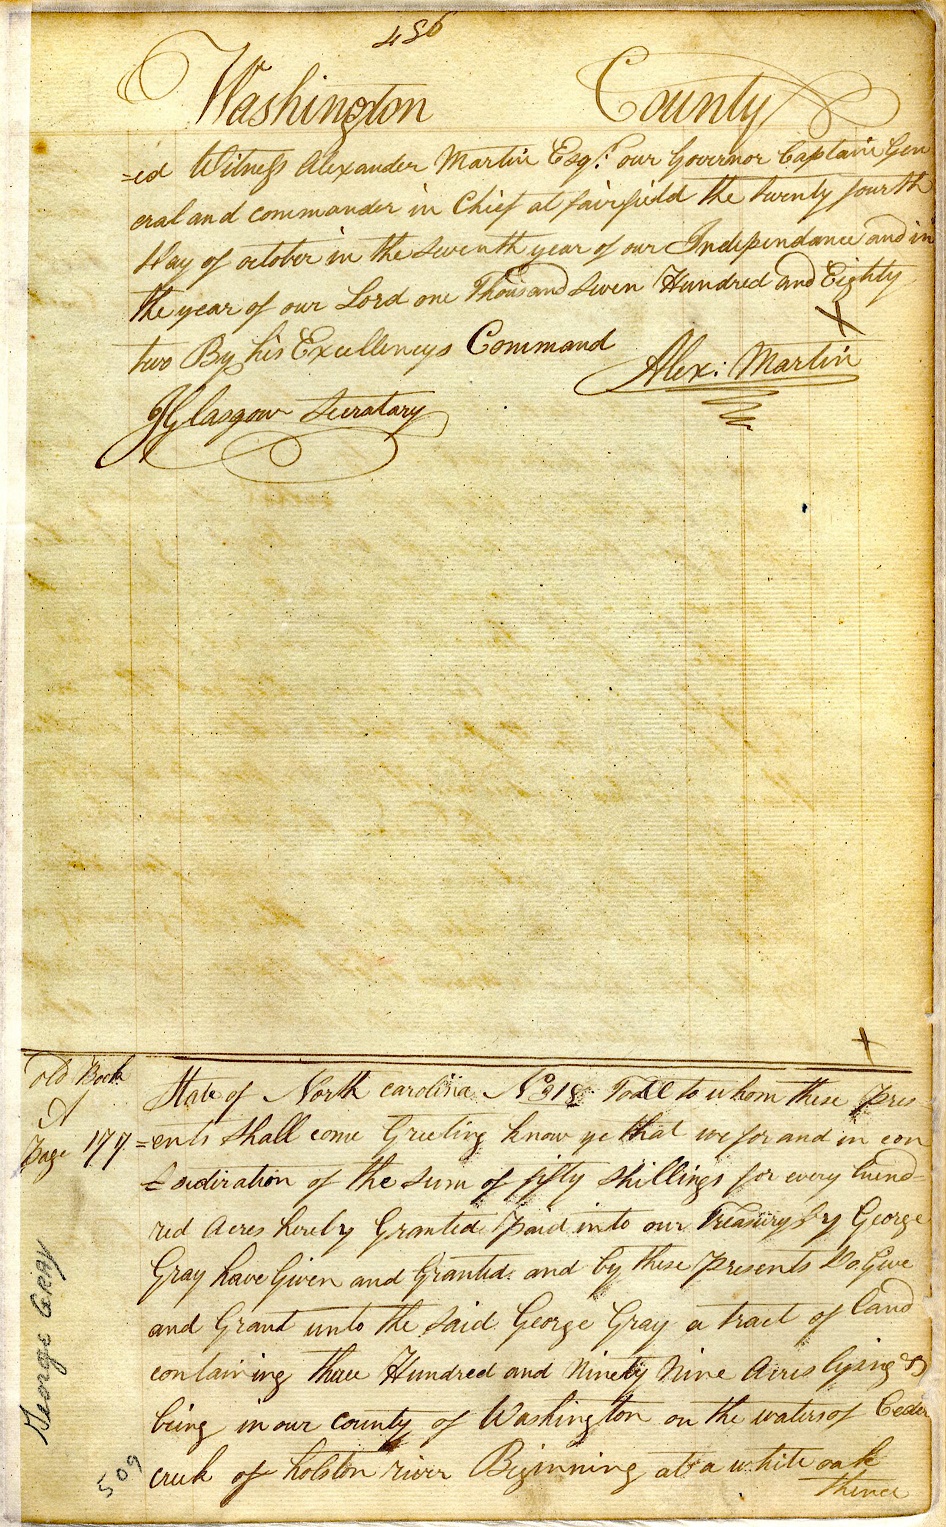 456
Washington County
=ed Witness Alexander Martin Esqr. our Governor Captain Gen
eral and commander in Chief at fairfield the twenty fourth
day of october in the seventh year of our Independance and in
the year of our Lord one Thousand Seven Hundred and Eighty
two By his Excellencys Command
Alex: Martin
JGlasgow Secratary
old Book
A
Page 177
State of North carolina No 318 To all to whom these pres
=ents shall come Greeting know ye that we for and in con
=sideration of the sum of fifty shillings for every hund=
red Acres hereby Granted paid into our Treasury by George
Gray have Given and Granted and by these presents Do Give
and Grant unto the said George Gray a tract of land
containing three Hundred and Ninety Nine Acres lying &
being in our county of Washington on the waters of Ceder
creek of holston river Beginning at a white oak
thence
George GRAY
509